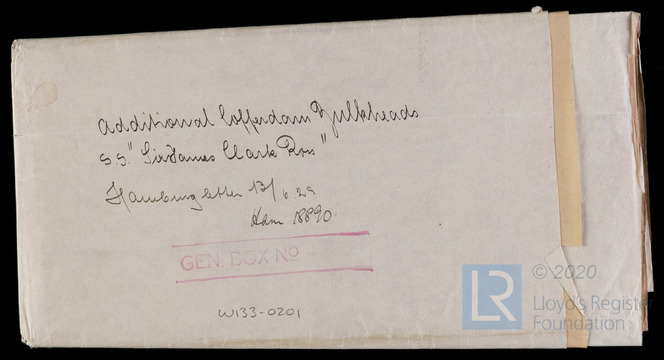 Additional Cofferdam Bulkheads
S.S. "Sir James Clark Ross"
Hamburg letter 13/6 29
Ham 18890
GEN. BOX NO
W133-0201
© 2020
LR
Lloyd's Register
Foundation